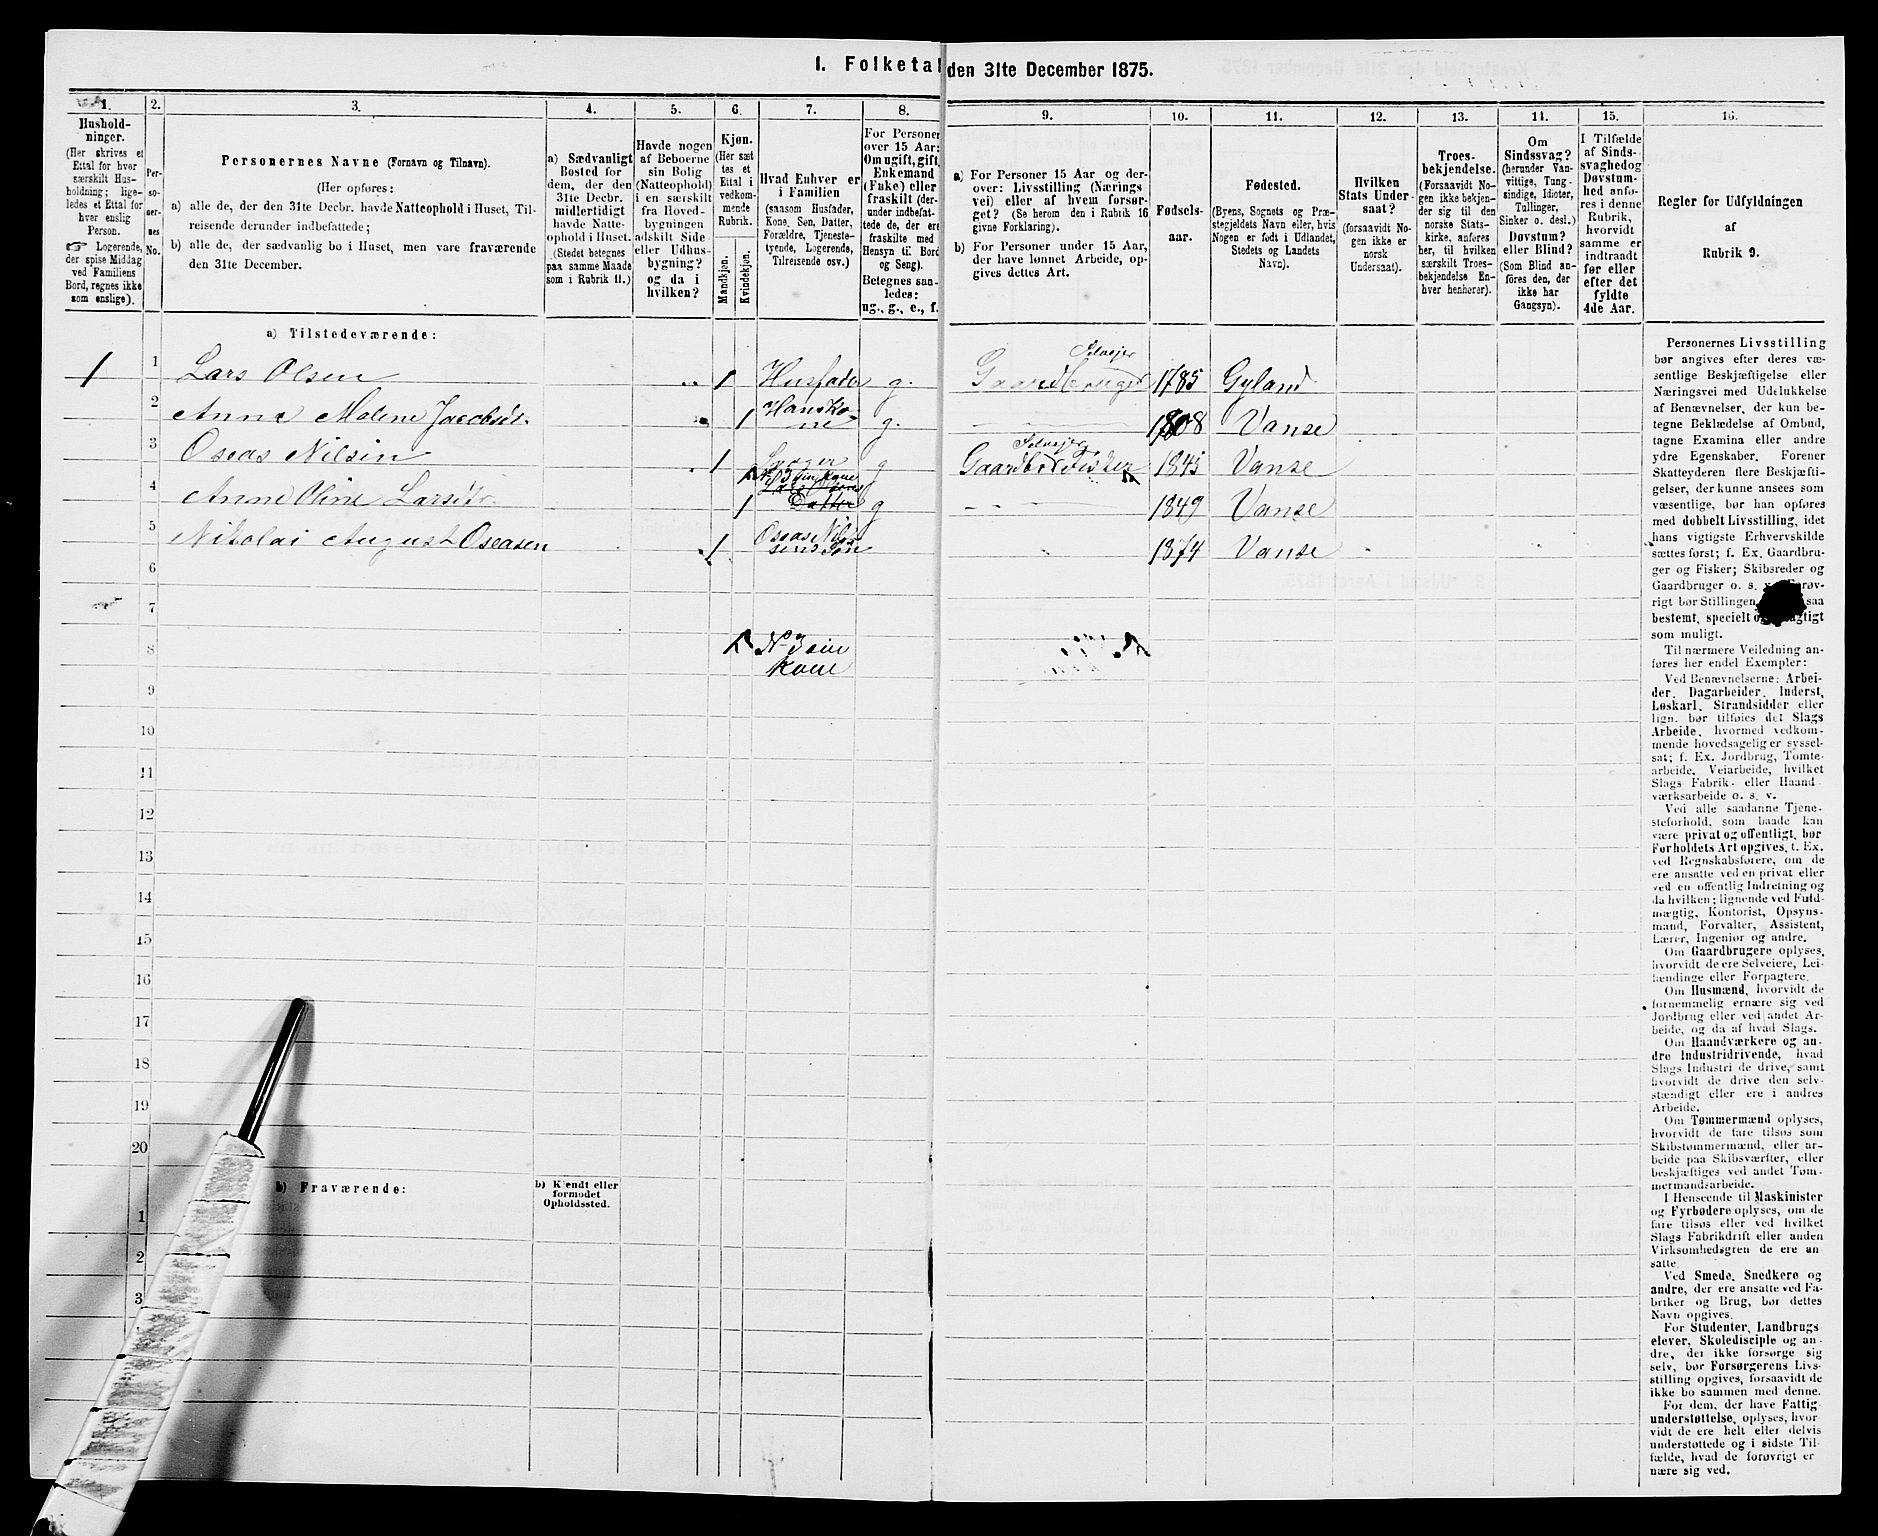 I. Folketal den 31te December 1875.
1.
Husholdninger.
(Her skrives et Ettal for hver særskilt Husholdning; ligeledes et Ettal for hver enslig Person.
☞ Logerende, der spise Middag ved Familiens Bord, regnes ikke som enslige).
2.
Personernes No.
3.
Personernes Navne (Fornavn og Tilnavn).
(Her opføres:
a) alle de, der den 31te Decbr. havde Natteophold i Huset, Tilreisende derunder indbefattede;
b) alle de, der sædvanlig bo i Huset, men vare fraværende den 31te December.
4.
a) Sædvanligt Bosted for dem, der den 31te Decbr. midlertidigt havde Natteophold i Huset. (Stedet betegnes paa samme Maade som i Rubrik 11.)
5.
Havde nogen af Beboerne sin Bolig (Natteophold) i en særskilt fra Hovedbygningen adskilt Side- eller Udhusbygning? og da i hvilken?
6.
Kjøn.
(Her sættes et Ettal i vedkommende Rubrik.
Mandkjøn.
Kvindekjøn.
7.
Hvad Enhver er i Familien
(saasom Husfader, Kone, Søn, Datter, Forældre, Tjenestetyende, Logerende, Tilreisende osv.)
8.
For Personer over 15 Aar: Om ugift, gift, Enkemand (Enke) eller fraskilt (derunder indbefattede de, der ere fraskilte med Hensyn til Bord og Seng). Betegnes saaledes: ug., g., e., f.
9.
a) For Personer 15 Aar og derover: Livsstilling (Næringsvei) eller af hvem forsørget? (Se herom den i Rubrik 16 givne Forklaring).
b) For Personer under 15 Aar, der have lønnet Arbeide, opgives dettes Art.
10.
Fødselsaar.
11.
Fødested.
(Byens, Sognets og Præstegjeldets Navn eller, hvis Nogen er født i Udlandet, Stedets og Landets Navn).
12.
Hvilken Stats Undersaat?
(forsaavidt Nogen ikke er norsk Undersaat).
13.
Troesbekjendelse.
(Forsaavidt Nogen ikke bekjender sig til den norske Statskirke, anføres her, til hvilken særskilt Troesbekjendelse Enhver henhører).
14.
Om Sindssvag? (herunder Vanvittige, Tungsindige, Idioter, Tullinger, Sinker o. desl.) Døvstum? eller Blind? (Som Blind anføres den, der ikke har Gangsyn).
15.
I Tilfælde af Sindssvaghed og Døvstumhed anføres i denne Rubrik, hvorvidt samme er indtraadt før eller efter det fyldte 4de Aar.
16.
Regler for Udfyldningen
af
Rubrik 9.
a) Tilstedeværende:
1 1 Lars Olsen 1 Husfader g. Selvejer Gaardbruger 1785 Gyland
2 Anne Malene Jacobsdt. 1 Hans Kone g. 1808 Vanse
3 Oseas Nilsen 1 g Selvejer Gaardbr Fisker 1845 Vanse
4 Anne Oline Larsdtr 1 No 3 sin Kone Datter g 1849 Vanse
5 Nikolai August Oseasen 1 Oseas Nilsens Søn 1874 Vanse
6
7
8 No 3 sin Kone
9
10
11
12
13
14
15
16
17
18
19
20
b) Fraværende:
b) Kjendt eller formodet Opholdssted.
1
2
3
Personernes Livsstilling
bør angives efter deres væsentlige
Beskjæftigelse eller
Næringsvei med Udelukkelse
af Benævnelser, der kun betegne
Beklædelse af Ombud,
tagne Examina eller andre
ydre Egenskaber. Forener
Skatteyderen flere Beskjæftigelser,
der kunne ansees som
væsentlige, bør han opføres
med dobbelt Livsstilling, idet
hans vigtigste Erhvervskilde
sættes først; f. Ex. Gaardbruger
og Fisker; Skibsreder og
Gaardbruger o. s. v. Forøvrigt
bør Stillingen saa
bestemt, specielt og
som muligt.
Til nærmere Veiledning anføres
her endel Exempler:
Ved Benævnelserne: Arbeider,
Dagarbeider, Inderst,
Løskarl, Strandsidder eller
lign. bør tilføies det Slags
Arbeide, hvormed vedkommende
hovedsagelig er sysselsat;
f. Ex. Jordbrug, Tomtearbeide,
Veiarbeide, hvilket
Slags Fabrik- eller Haandværksarbeide
o. s. v.
Ved alle saadanne Tjenesteforhold,
som baade kan
være privat og offentligt, bør
Forholdets Art opgives, f. Ex.
ved Regnskabsførere, om de
ere ansatte ved en privat eller
ved en offentlig Indretning og
da hvilken; lignende ved Fuldmægtig,
Kontorist, Opsynsmand,
Forvalter, Assistent,
Lærer, Ingeniør og andre.
Om Gaardbrugere oplyses,
hvorvidt de ere Selveiere, Leilændinge
eller Forpagtere.
Om Husmænd, hvorvidt de
fornemmelig ernære sig ved
Jordbrug eller ved andet Arbeide,
og da af hvad Slags.
Om Haandværkere og andre
Industridrivende, hvad
Slags Industri de drive, samt
hvorvidt de drive den selvstændigt
eller ere i andres
Arbeide.
Om Tømmermænd oplyses,
hvorvidt de fare tilsøs som
Skibstømmermænd, eller arbeide
paa Skibsværfter, eller
beskjæftiges ved andet Tømmermandsarbeide.
I Henseende til Maskinister
og Fyrbødere oplyses, om de
fare tilsøs eller ved hvilket
Slags Fabrikdrift eller anden
Virksomhedsgren de ere ansatte.
Ved Smede, Snedkere og
andre, der ere ansatte ved Fabriker
og Brug, bør dettes
Navn opgives.
For Studenter, Landbrugselever,
Skoledisciple og andre,
der ikke forsørge sig
selv, bør Forsørgerens Livsstilling
opgives, forsaavidt de
ikke bo sammen med denne.
For dem, der have Fattigunderstøttelse,
oplyses, hvorvidt
de ere helt eller delvis
understøttede og i sidste Tilfælde,
hvad de forøvrigt ernære
sig ved.